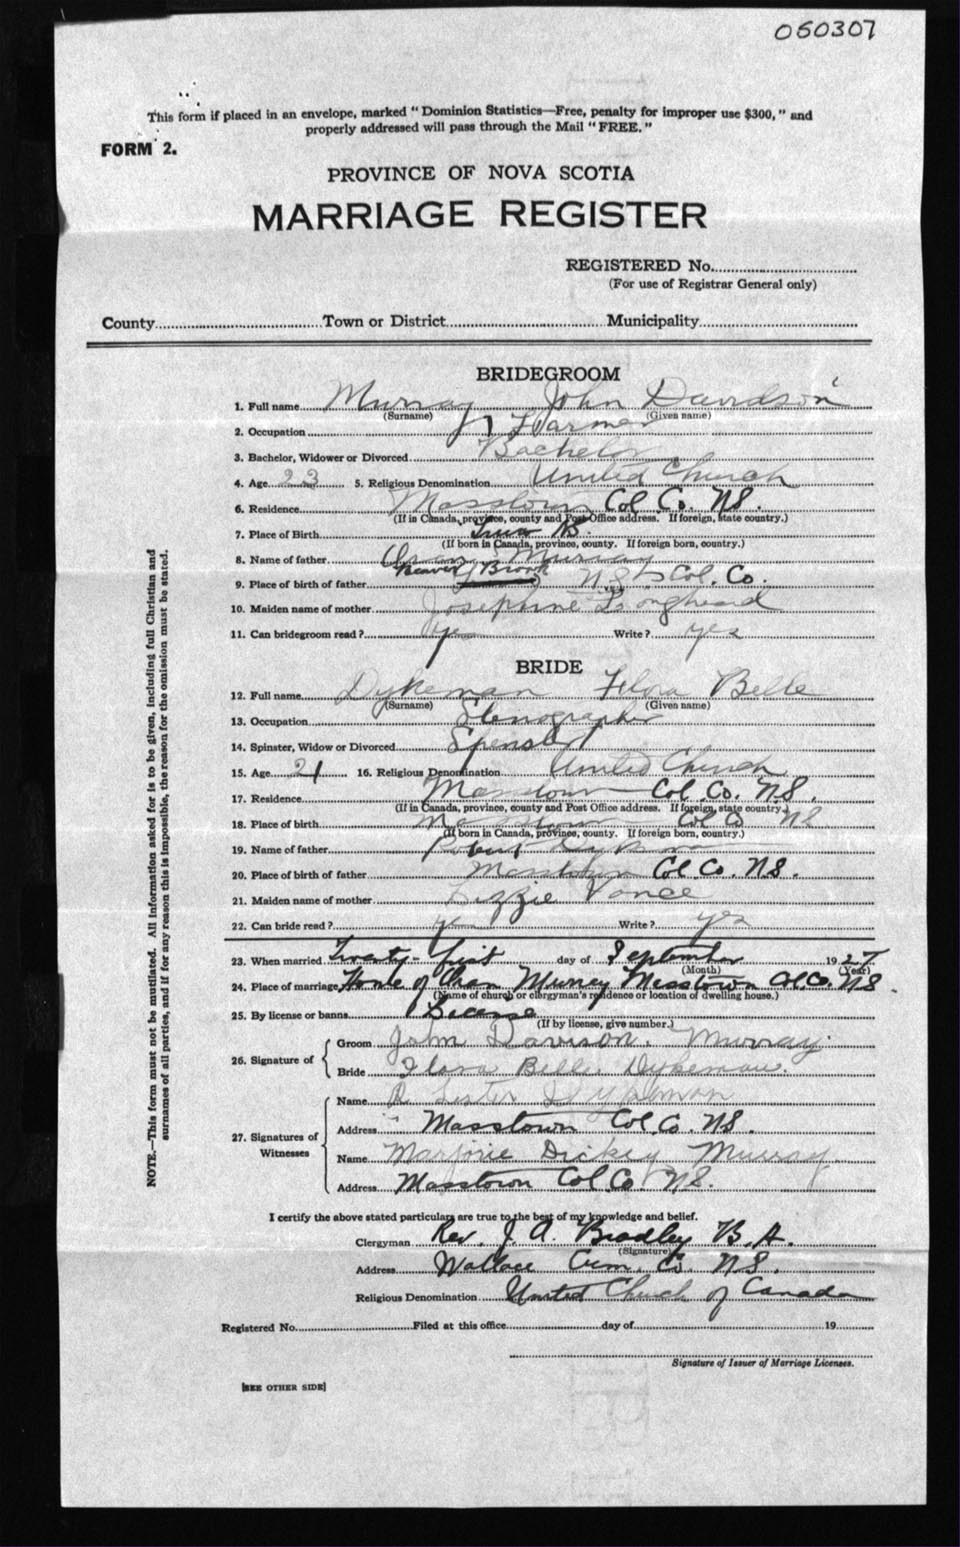 060307
This form if placed in an envelope, marked "Dominion Statistics—Free, penalty for improper use $300," and
properly addressed will pass through the Mail "FREE."
FORM 2.
PROVINCE OF NOVA SCOTIA
MARRIAGE REGISTER
REGISTERED No.
(For use of Registrar General only)
County Town or District Municipality
BRIDEGROOM
1. Full name Murray John Davidson
(Surname) (Given name)
2. Occupation Farmer
3. Bachelor, Widower or Divorced Bachelor
4. Age 23 5. Religious Denomination United Church
6. Residence Masstown Col Co. NS.
(If in Canada, province, county and Post Office address. If foreign, state country.)
7. Place of Birth
(If born in Canada, province, county. If foreign born, country.)
8. Name of father Murray
9. Place of birth of father Brook N.S. Col. Co.
10. Maiden name of mother Josephine Longheard
11. Can bridegroom read? yes Write? yes
BRIDE
12. Full name Dykeman Flora Belle
(Surname) (Given name)
13. Occupation Stenographer
14. Spinster, Widow or Divorced Spenster
15. Age 21 16. Religious Denomination United Church
17. Residence Masstown Col. Co. N.S.
(If in Canada, province, county and Post Office address. If foreign, state country.)
18. Place of birth Masstown Col Co NS
(If born in Canada, province, county. If foreign born, country.)
19. Name of father Robert Dykeman
20. Place of birth of father Masstown Col. Co. N.S.
21. Maiden name of mother Lizzie Vance
22. Can bride read? yes Write? yes
23. When married Twenty-first day of September 1927
(Month) (Year)
24. Place of marriage Home of Murray Masstown Col. Co. NS.
(Name of church or clergyman's residence or location of dwelling house.)
25. By license or banns License
(If by license, give number.)
26. Signature of
Groom John Davison Murray
Bride Flora Belle Dykeman.
27. Signatures of Witnesses
Name R Lester Dykeman
Address " Masstown Col. Co. NS.
Name Marjorie Dickey Murray
Address Masstown Col. Co. NS.
I certify the above stated particulars are true to the best of my knowledge and belief.
Clergyman Rev. J. A. Bradley B.A.
(Signature)
Address Wallace Cum. Co. N.S.
Religious Denomination United Church of Canada
Registered No. Filed at this office day of 19
Signature of Issuer of Marriage Licenses.
[SEE OTHER SIDE]
NOTE.—This form must not be mutilated. All information asked for is to be given, including full Christian and
surnames of all parties, and if for any reason this is impossible, the reason for the omission must be stated.